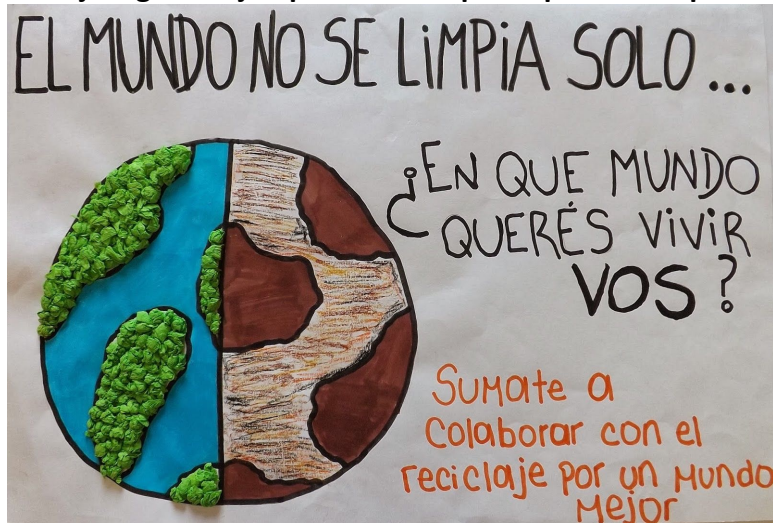 EL MUNDO NO SE LIMPIA SOLO...
¿EN QUE MUNDO
QUERÉS VIVIR
VOS?
Sumate a
Colaborar con el
reciclaje por un Mundo
Mejor